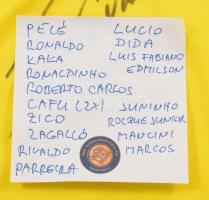 PELÉ
RONALDO
KAKA
RONALDINHO
ROBERTO CARLOS
CAFU (2X)
ZICO
ZAGALLO
RIVALDO
PARREIRA
LUCIO
DIDA
LUIS FABIANO
EDMILSON
JUNINHO
ROQUE JUNIOR
MANCINI
MARCOS